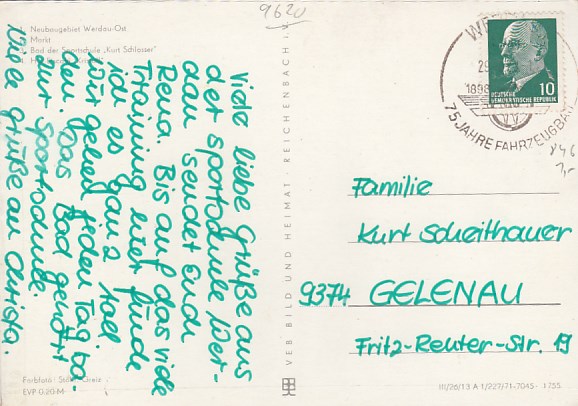 9620
Neubaugebiet Werdau-Ost
Markt
Bad der Sportschule „Kurt Schlosser"
Viele liebe Grüße aus
der Sportschule Wer-
dau sendet Euch
Rena. Bis auf das viele
Training hier finde
ich es ganz toll
Wir gehen jeden Tag ba-
den. Das Bad gehört
zur Sportschule.
Viele Grüße an Christa.
Farbfoto:
EVP 0,20 M
VEB BILD UND HEIMAT · REICHENBACH i.
75 JAHRE FAHRZEUGBAU
1898
DEUTSCHE
DEMOKRATISCHE REPUBLIK
10
846
1,-
Familie
Kurt Scheithauer
9374 GELENAU
Fritz-Reuter-Str. 19
III/26/13 A 1/227/71-7045